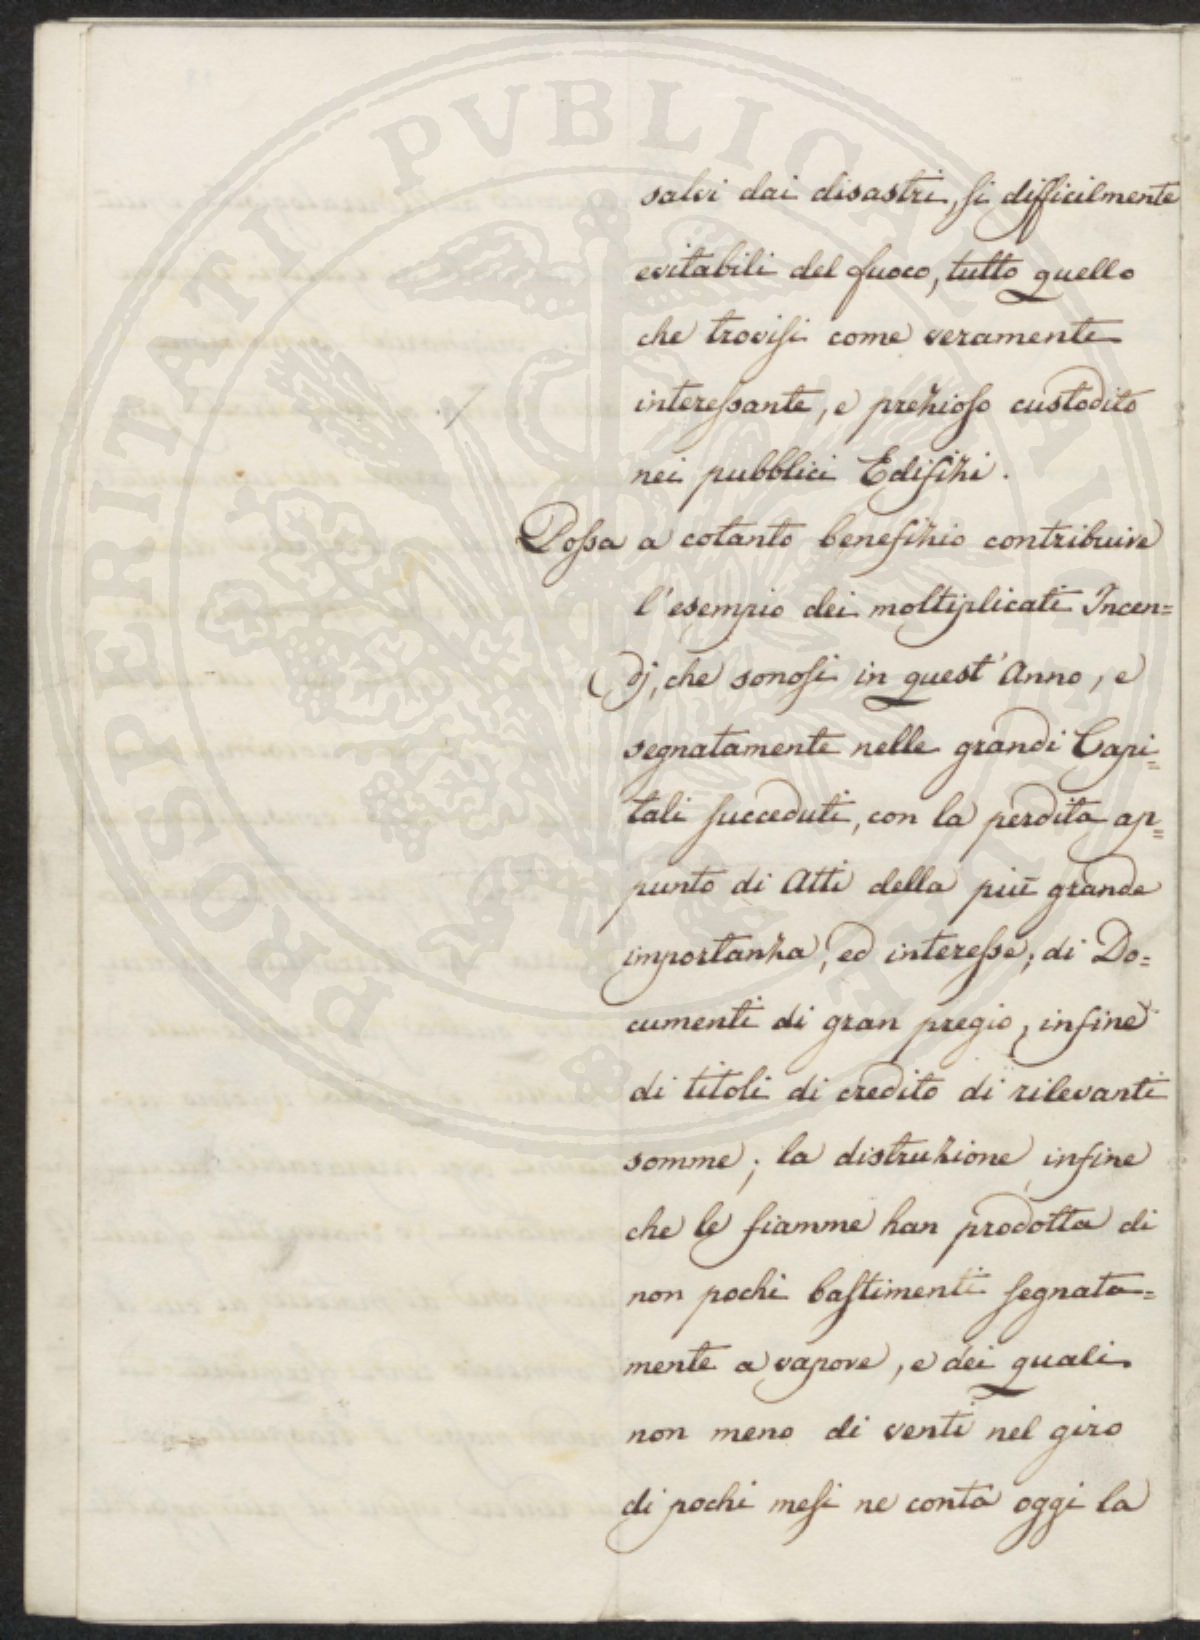 PROSPERITATI PVBLICAE AVGENDAE
salvi dai disastri, si difficilmente
evitabili del fuoco, tutto quello
che trovisi come veramente
interessante, e prezioso custodito
nei pubblici Edifizi.
Possa a cotanto benefizio contribuire
l'esempio dei moltiplicati Incen=
dj, che sonosi in quest'Anno, e
segnatamente nelle grandi Capi=
tali succeduti, con la perdita ap=
punto di Atti della più grande
importanza, ed interesse; di Do=
cumenti di gran pregio, infine
di titoli di credito di rilevanti
somme; la distruzione infine
che le fiamme han prodotta di
non pochi bastimenti segnata=
mente a vapore, e dei quali
non meno di venti nel giro
di pochi mesi ne conta oggi la